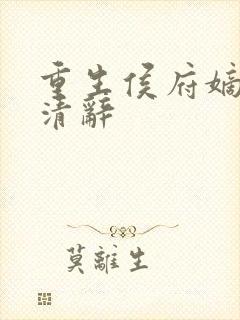 重生侯府嫡
清辭
莫離生